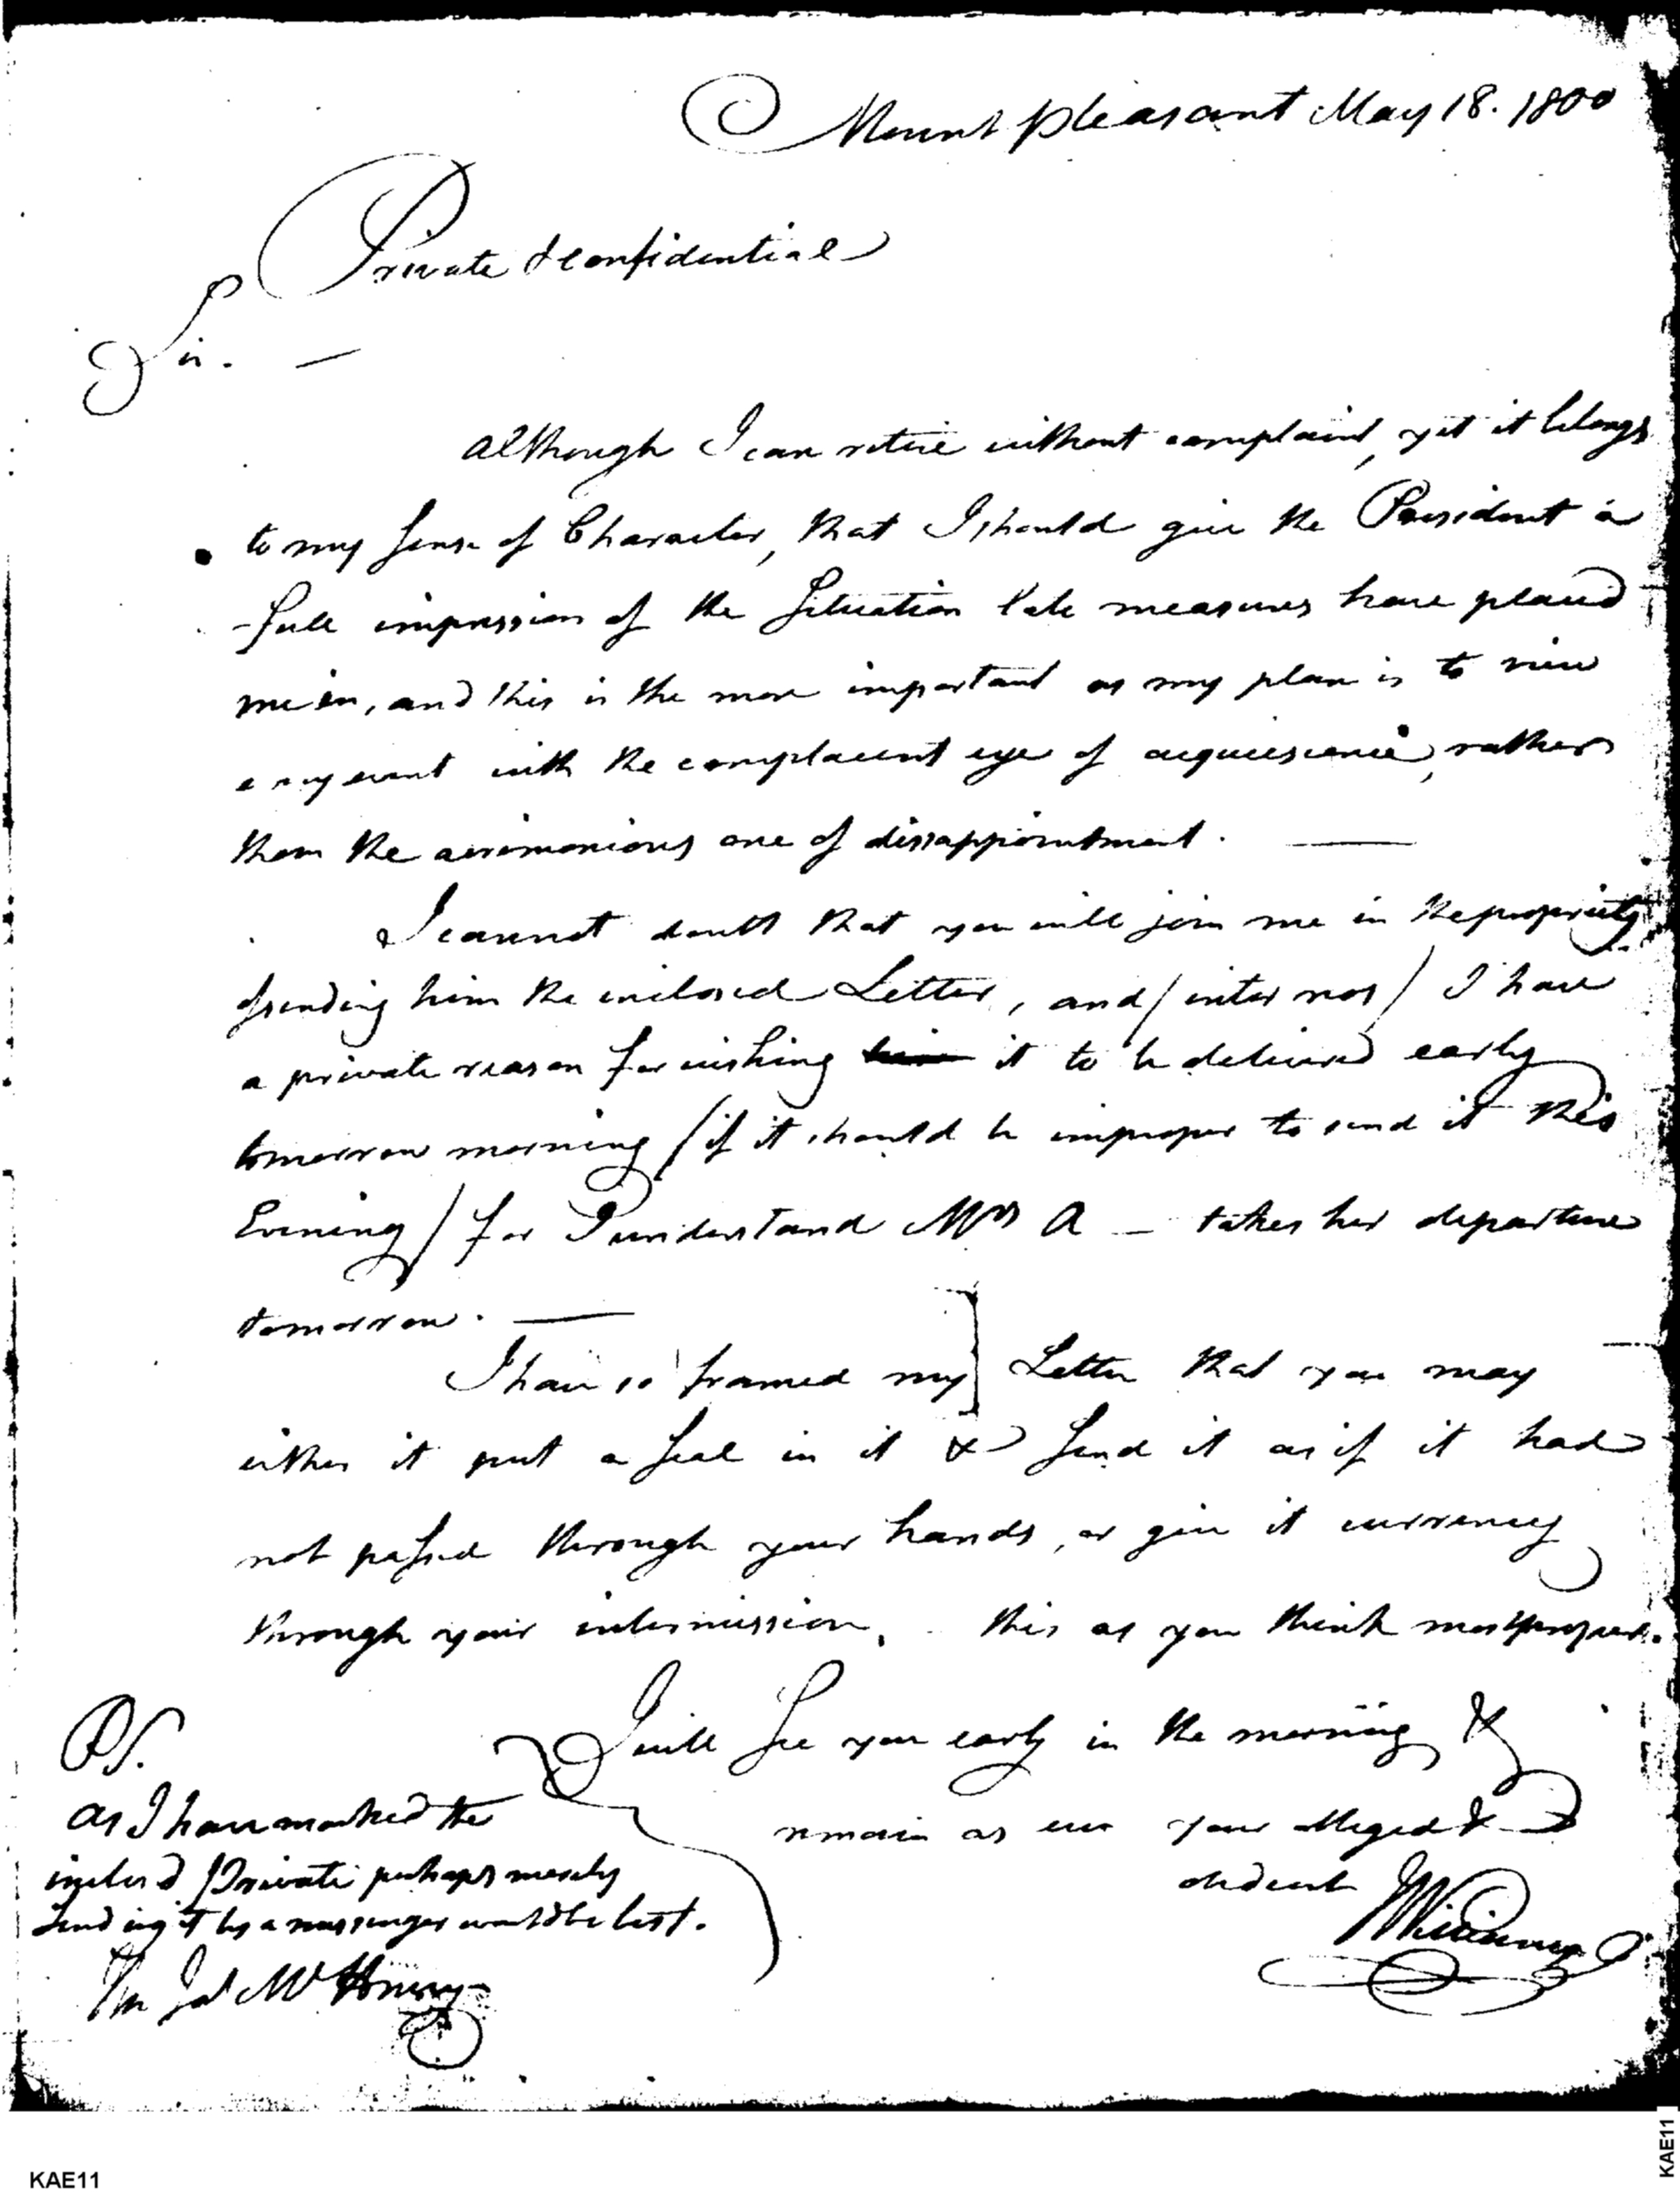 Mount pleasant May 18. 1800
Private & Confidential
Sir. —
Although I can retire without complaint, yet it belongs
to my sense of Character, that I should give the President a
full impression of the Situation late measures have placed
me in, and this is the more important as my plan is to view
every event with the complacent eye of acquiescence, rather
than the acrimonious one of dissappointment. —
I cannot doubt that you will join me in the propriety
of sending him the inclosed Letter, and / inter nos / I have
a private reason for wishing it to be delivered early
tomorrow morning / if it should be improper to send it this
Evening / for I understand Mrs A — takes her departure
tomorrow. —
I have so framed my ] Letter that you may
either it put a seal in it & Send it as if it had
not passed through your hands, or give it currency
through your intermission. this as you think most proper.
I will See you early in the morning &
remain as ever your obliged &
obedient
PS.
As I have marked the
inclosed Private perhaps merely
Sending it by a messenger would be best.
Jas McHenry
KAE11
KAE11